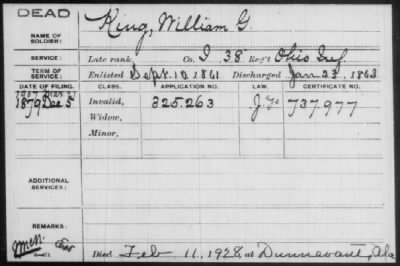 DEAD
NAME OF SOLDIER: King, William G
SERVICE: Late rank Co. I 38 Reg't Ohio Inf.
TERM OF SERVICE: Enlisted Sept. 10, 1861 Discharged Jan 23, 1863
DATE OF FILING. CLASS. APPLICATION NO. LAW. CERTIFICATE NO.
1879 Dec 5 Invalid, 325.263 737.977
Widow,
Minor,
ADDITIONAL SERVICES:
REMARKS:
Died Feb 11, 1928, at Dunnavant, Ala